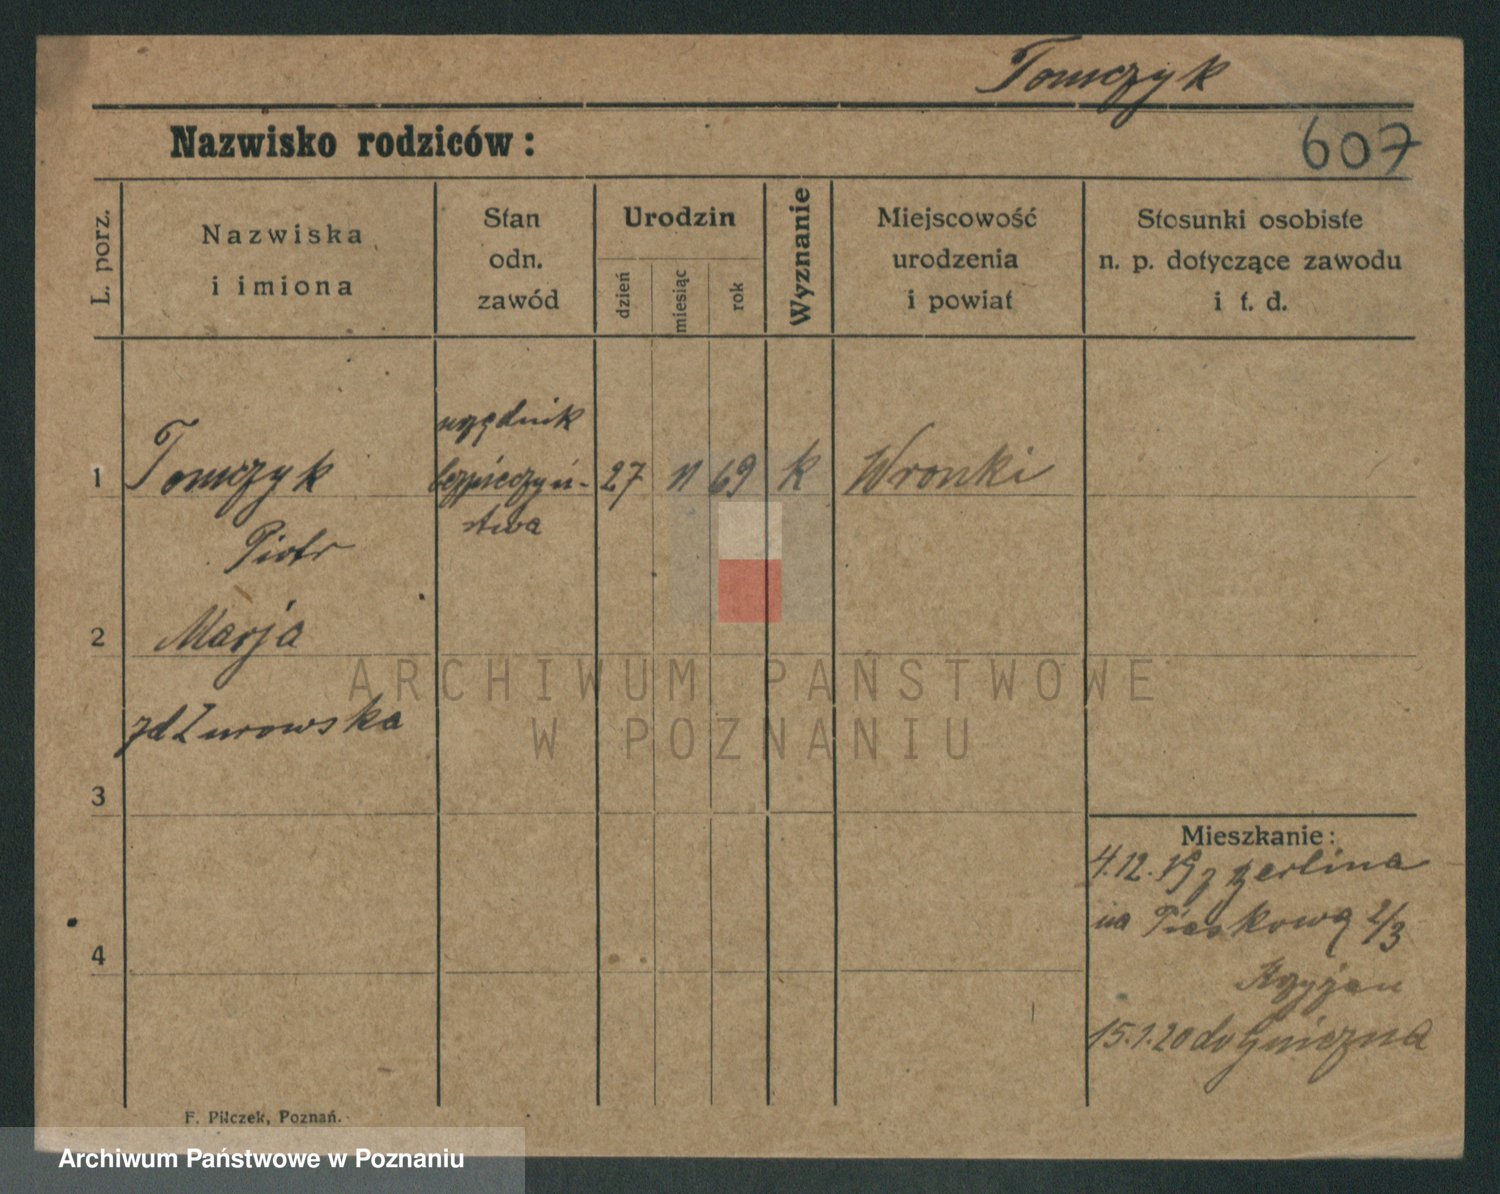 Tomczyk
Nazwisko rodziców :
607
L. porz.
Nazwiska
i imiona
Stan
odn.
zawód
Urodzin
dzień
miesiąc
rok
Wyznanie
Miejscowość
urodzenia
i powiat
Stosunki osobiste
n. p. dotyczące zawodu
i t. d.
1
Tomczyk
Piotr
urzędnik
bezpieczyń-
stwa
27
11
69
k
Wronki
2
Marja
zd Żurowska
3
4
Mieszkanie:
4.12.19 z Berlina
na Piaskową 2/3
15.1.20 do Gniezna
F. Pilczek, Poznań.
ARCHIWUM PAŃSTWOWE
W POZNANIU
Archiwum Państwowe w Poznaniu